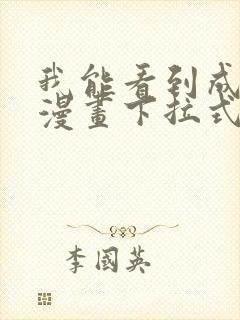 我能看到成
漫畫下拉式
李國英